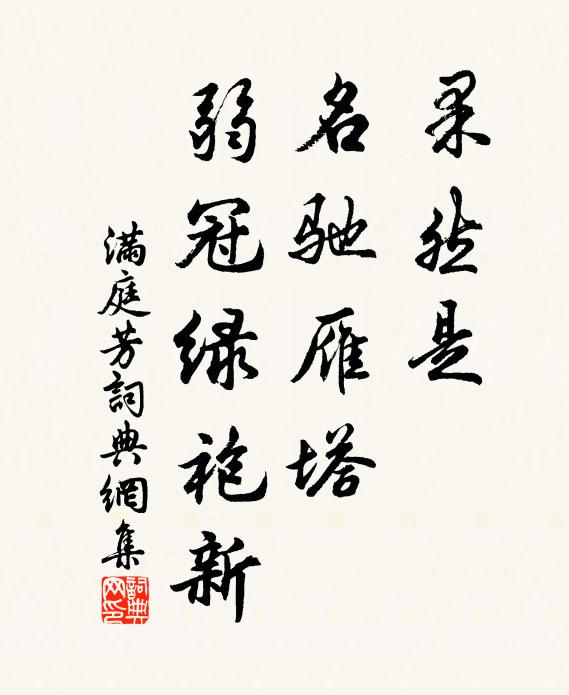 果然是
名驰雁塔
弱冠绿袍新
满庭芳詞典網集
詞典
网印